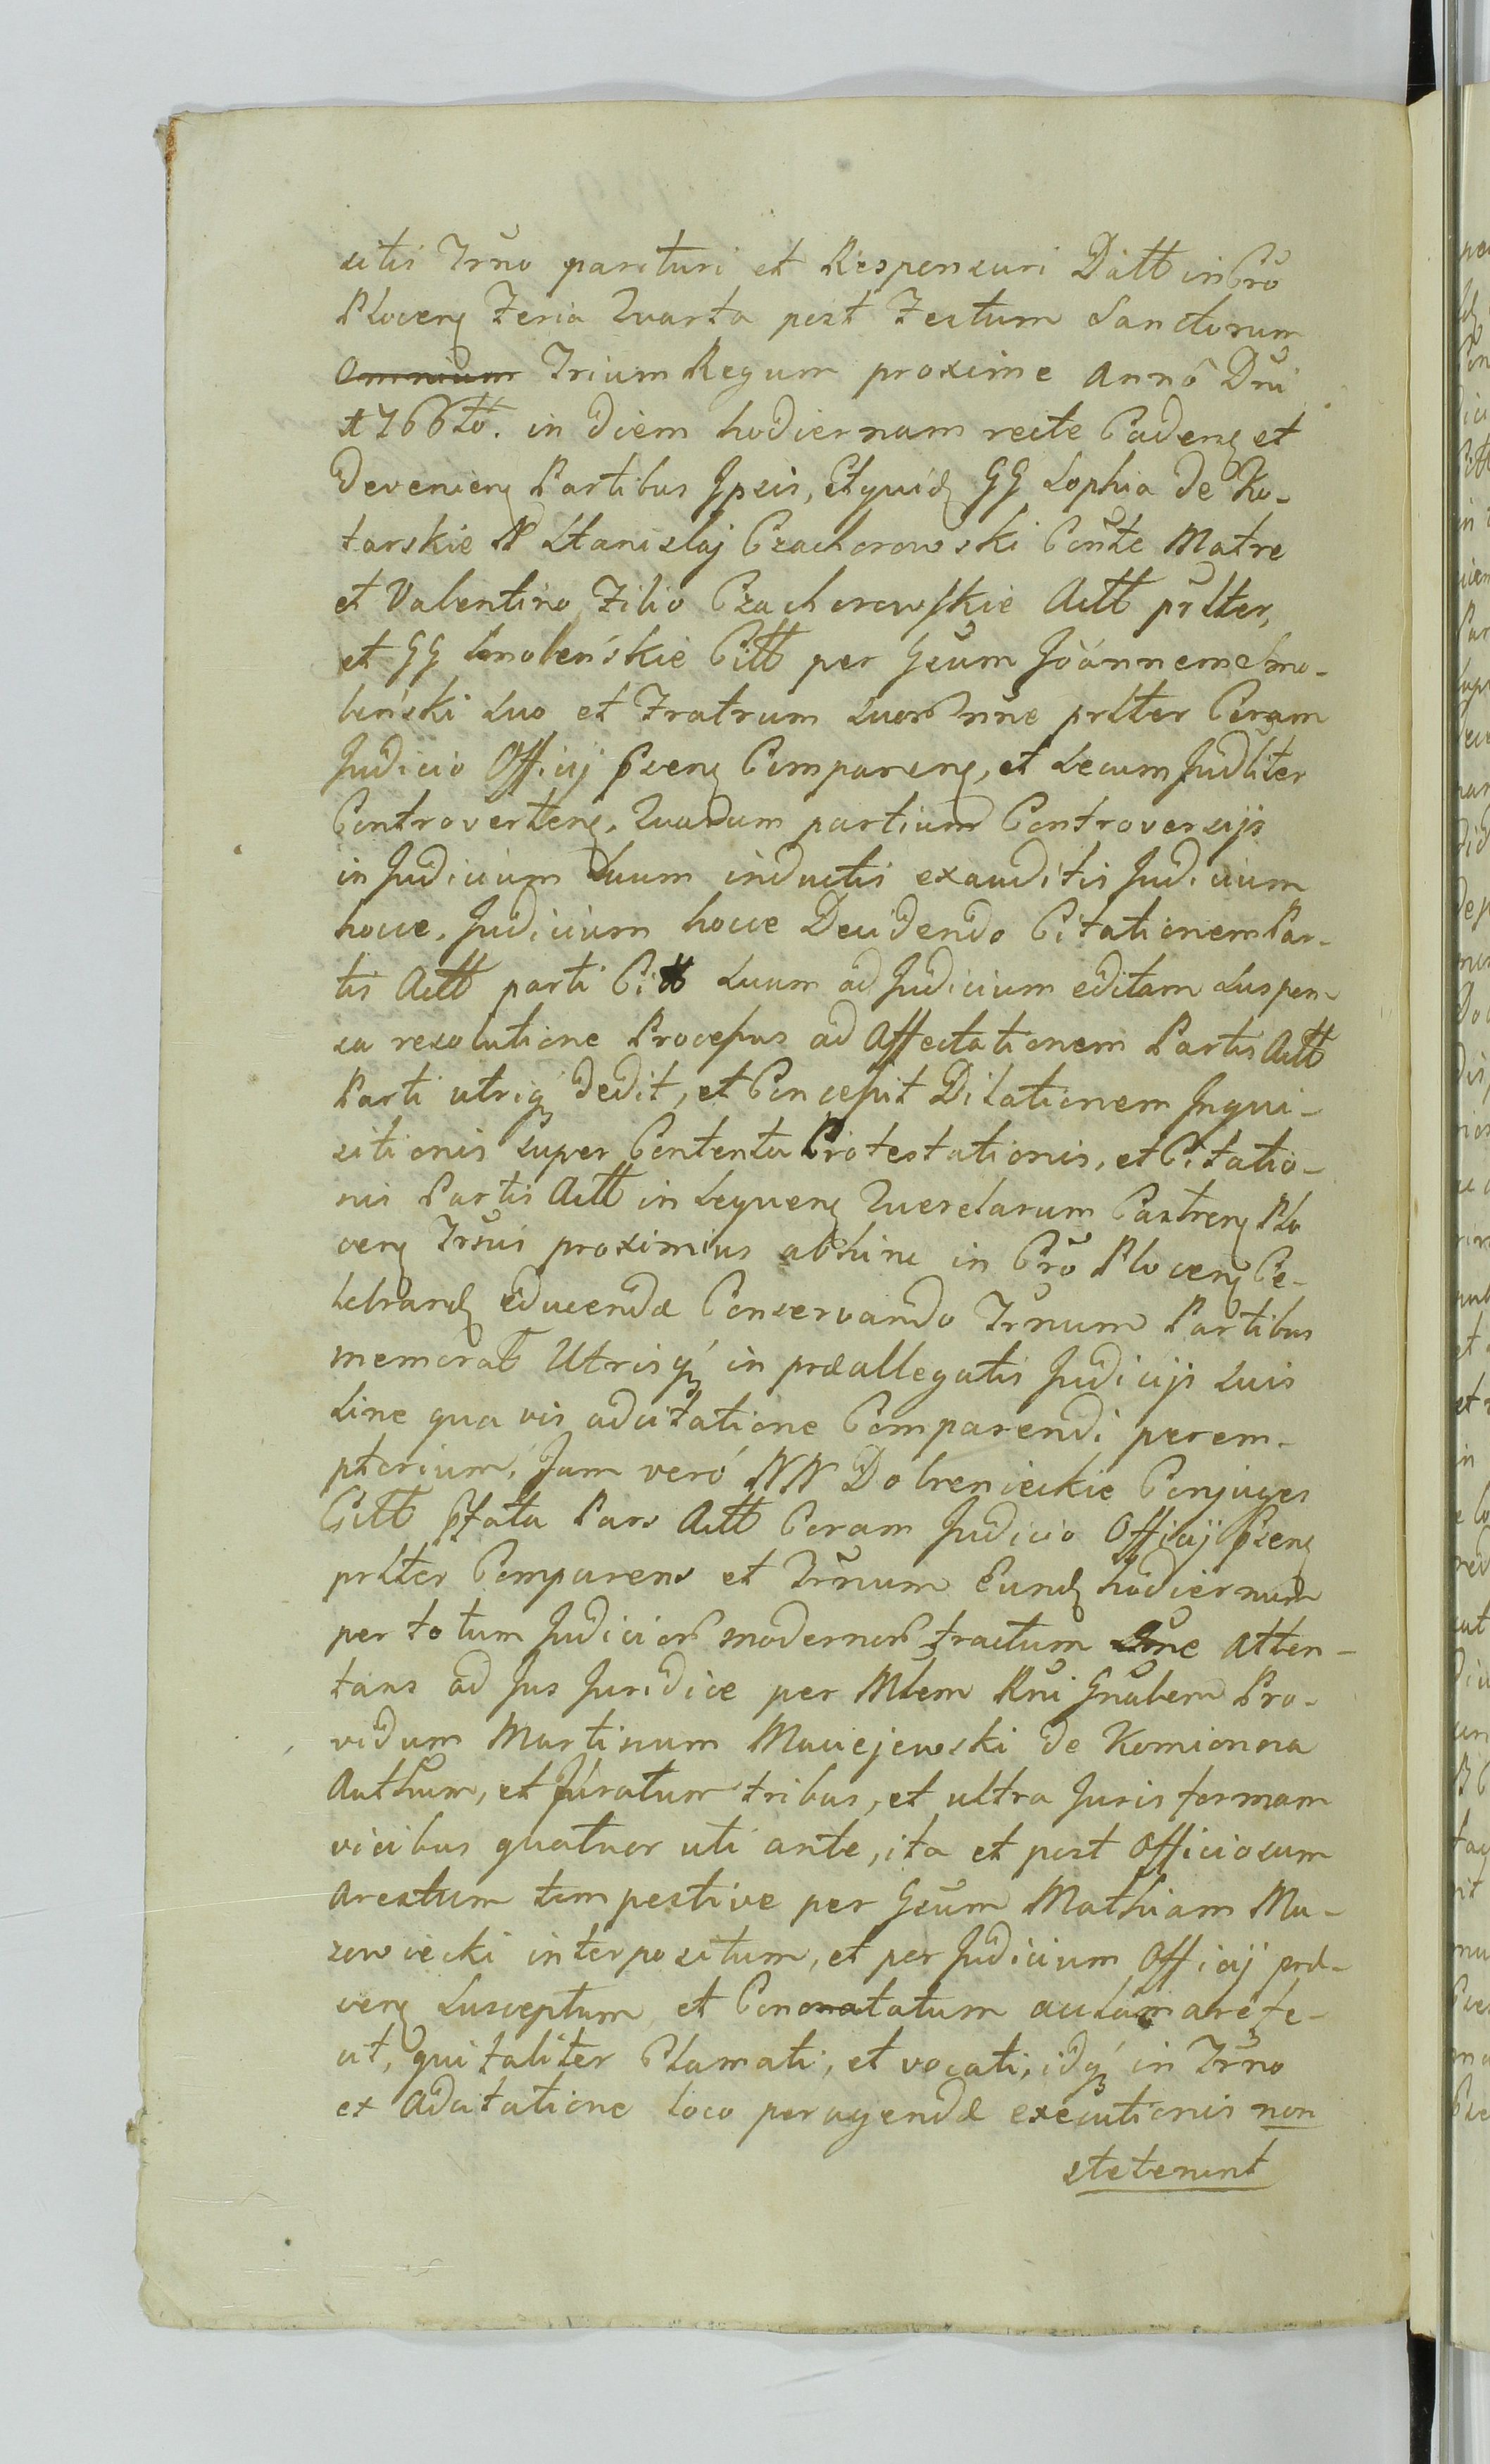 sitis Trño parituri et Responsuri Datt in Crõ
Plocen Feria Quarta post Festum Sanctorum
Omnium Trium Regum proxime Anno Dñi
1766to. in diem hodiernam recte Caden et
devenien Partibus Ipsis, et quid GG Sophia de Ko-
tarskie N Stanislaj Czachorowski Conte Matre
et Valentino Filio Czachorowskie Actt prlter,
et GG Smoleńskie Citt per Gsum Joannem Smo-
leński Suo et Fratrum Suor nñe prlter Coram
Judicio Officij psen Comparen, et Secum Judliter
Controverten. Quarum partium Controversijs
in Judicium Suum inductis exauditis Judicium
hocce. Judicium hocce Decidendo Citationem Par-
tis Actt parti Citt Suum ad Judicium editam suspen
sa resolutione Processus ad Affectationem Partis Actt
Parti utriq dedit, et Concessit Dilationem Inqui-
sitionis super Contenta Protestationis, et Citatio-
nis Partis Actt in Sequen Querelarum Castren Plo
cen Trñis proximius abhinc in Crõ Plocen Ce-
lebrand educendæ Conservando Trñum Partibus
memorat Utrisq in præallegatis Judicijs Suis
Sine qua vis adcitatione Comparendi perem-
ptorium. Jam veró NN Dobrenieckie Conjuges
Citt pfata Pars Actt Coram Judicio Officij psen
prlter Comparens et Trñum Eund hodiernum
per totum Judicior modernor tractum Sine atten-
tans ad Jus Juridice per Mlem Rñi Gñalem Pro-
vidum Martinum Maciejewski de Komionna
Authum, et Juratum tribus, et ultra Juris formam
vicibus quatuor uti ante, ita et post Officiosum
arestum tempestive per Gsum Mathiam Ma-
zowiecki interpositum, et per Judicium Officij præ-
sen Susceptum et Connotatum acclamare fe-
cit, qui taliter Clamati, et vocati, idq in Trño
ex Adcitatione loco peragendæ executionis non
steterunt